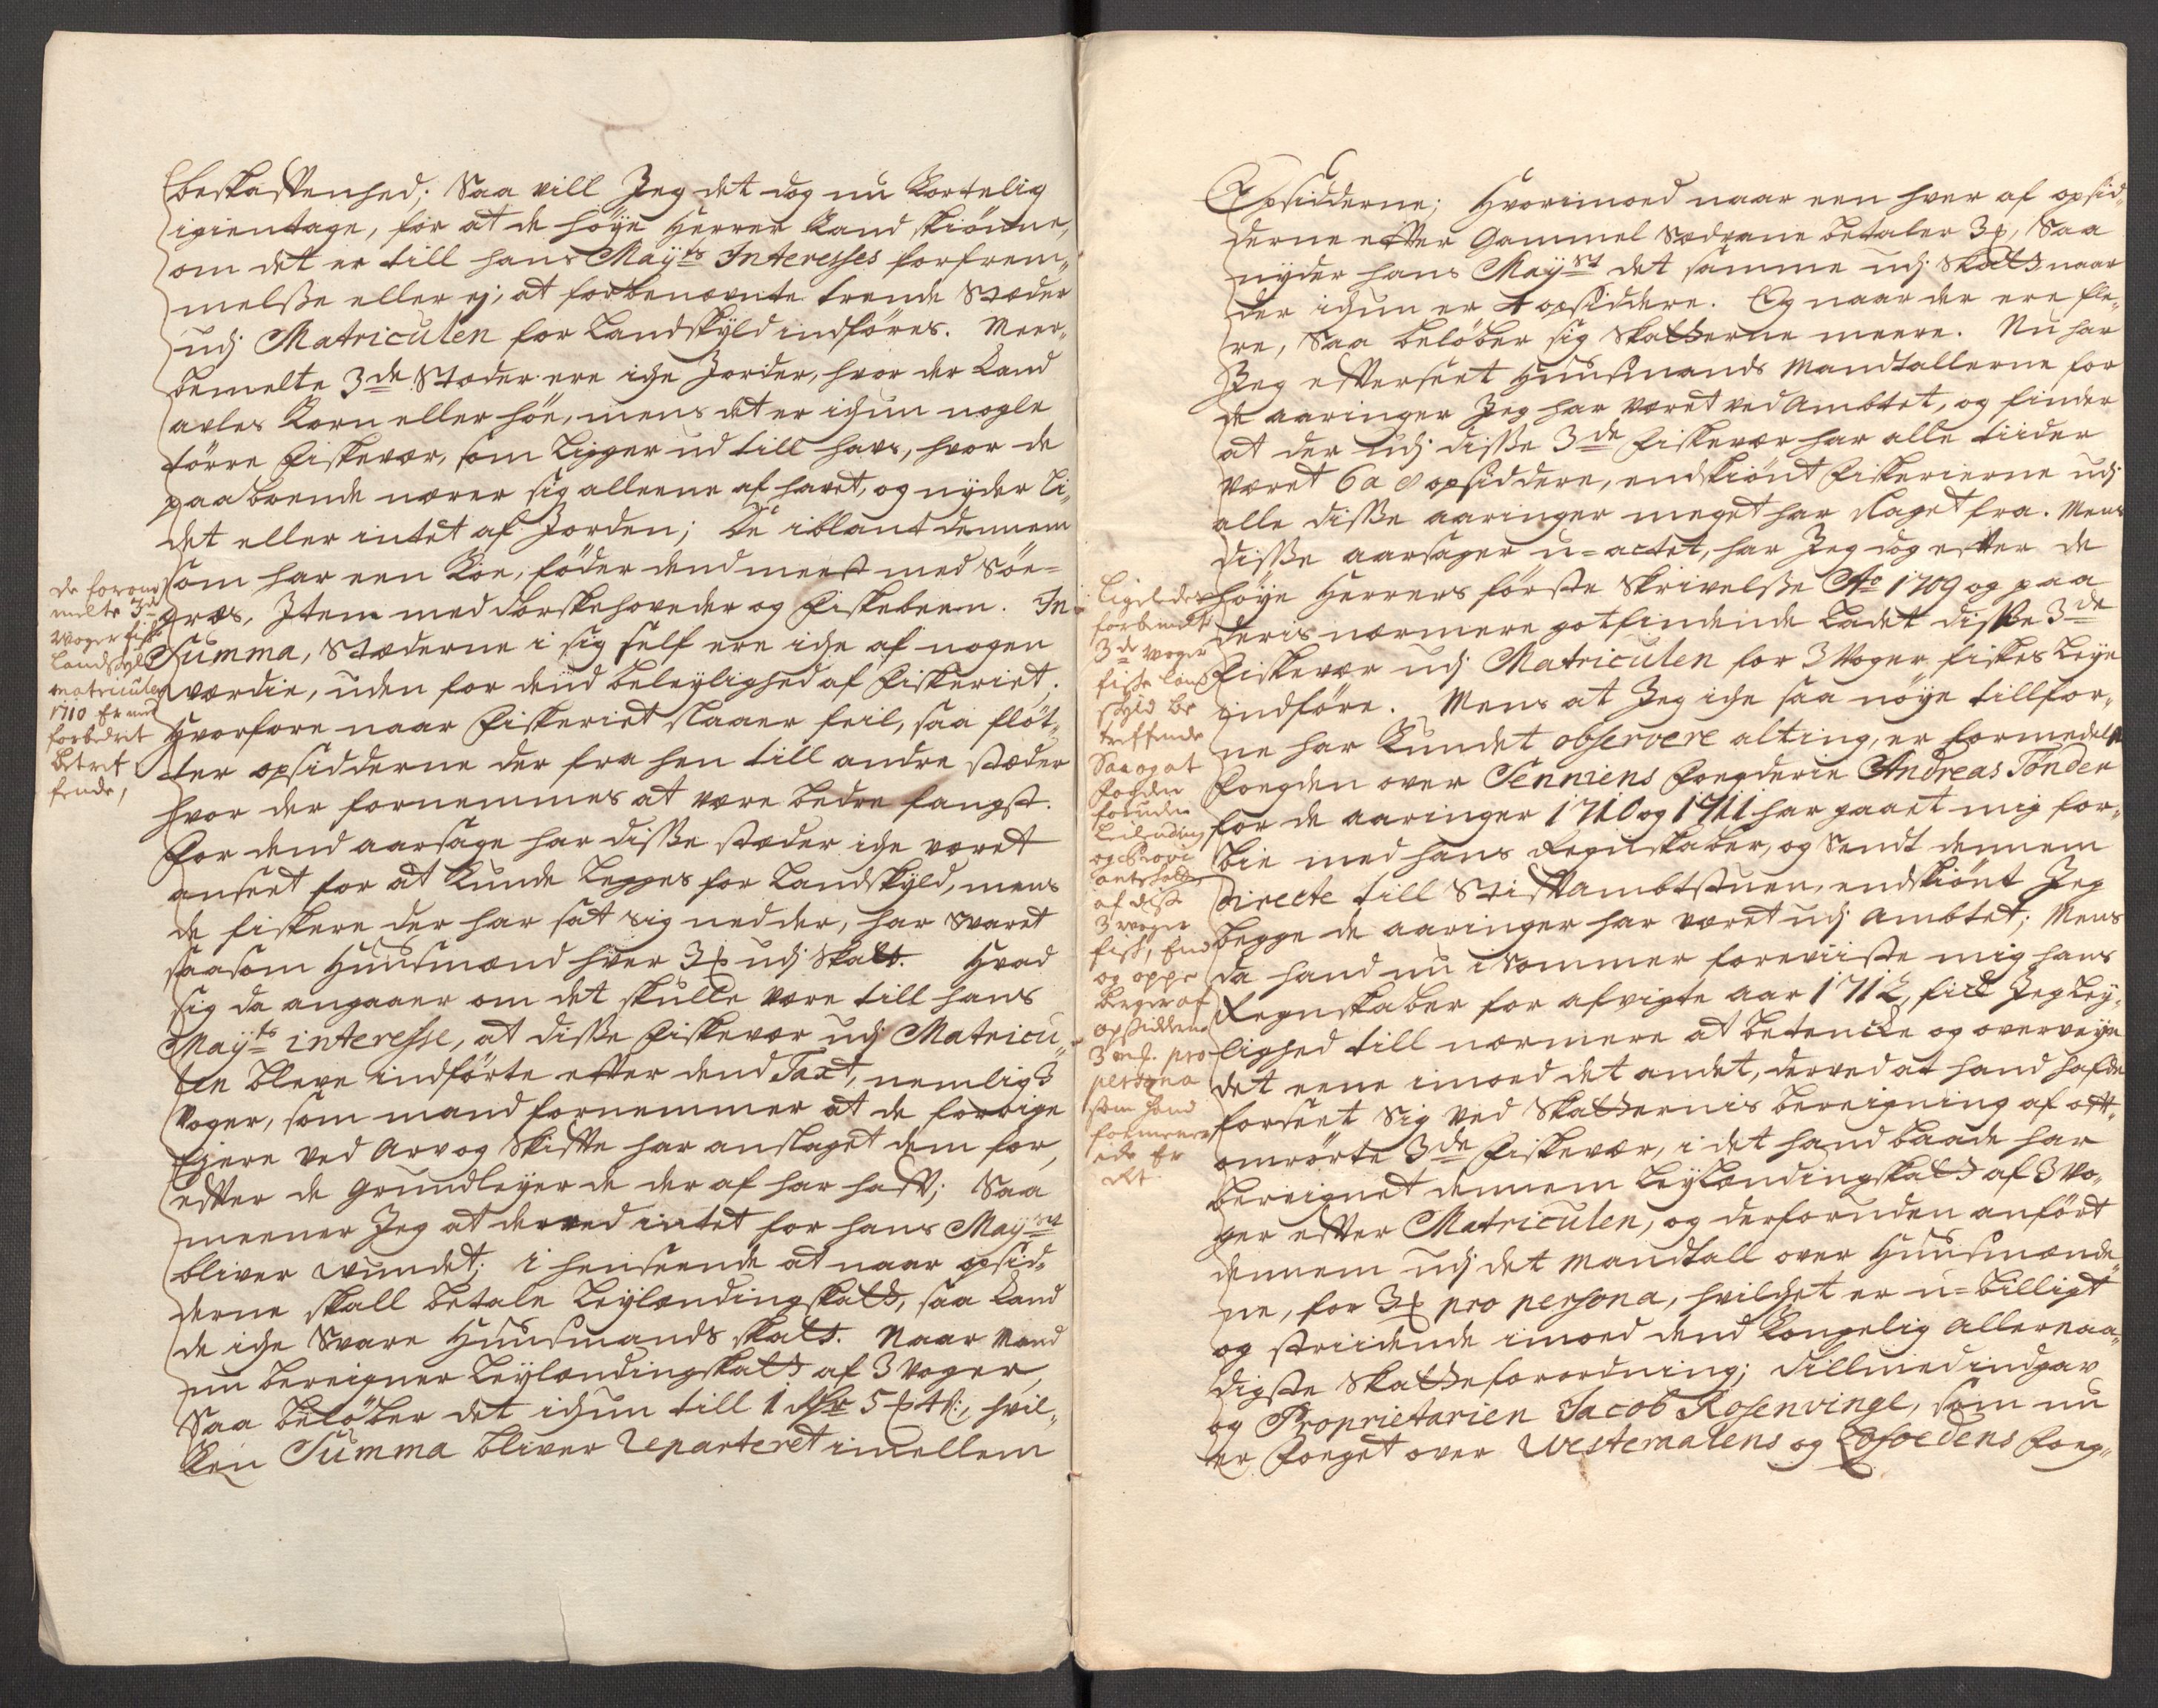 beskaffenhed; Saa vill Jeg det dog nu kortelig
igientage, for at de höye Herrer kand skiönne,
om det er till hans Mayts Interesses forfrem-
melsse eller ej, at forbenævnte trende Stæder
udj Matriculen for Landskyld indföres. Meer-
bemelte 3de Stæder ere iche Jorder, hvor der kand
avles korn eller höe, mens det er ichun nogle
törre fiskevær, som ligger ud till havs, hvor de
paaboende nærer sig alleene af havet, og nyder li-
det eller intet af Jorden; De iblant dennem
som har een Koe, föder dend meest med Söe-
græs, Item med dorskehoveder og fiskebeen. In
Summa, Stæderne i sig self ere iche af nogen
værdie, uden for dend beleylighed af fiskeriet;
Hvorfore naar fiskeriet slaaer feil, saa flöt-
ter opsidderne der fra hen till andre stæder
hvor der fornemmes at være bedre fangst.
For dend aarsage har disse stæder iche været
anseet for at kunde legges for Landskyld, mens
de fiskere der har sat sig ned der, har svaret
saasom Huusmænd hver 3 udj skatt. Hvad
sig da angaaer om det skulle være till hans
Mayts interesse, at disse fiskevær udj Matricu-
len bleve indförte efter dend Taxt, nemlig 3
voger, som mand fornemmer at de forrige
Ejere ved arv og skifte har anslaget dem for,
efter de grundleyer de der af har hafft; Saa
meener Jeg at derved intet for hans Mayst
bliver vundet; i henseende at naar opsid-
derne skall betale Leylændingskatt, saa kand
de iche svare Huusmands skatt. Naar mand
nu bereigner Leylændingskatt af 3 voger,
Saa belöber det ichun till 1 Rdr 5 4 s:, hvil-
ken Summa bliver reparteret imellem
de foromd
melte 3de
woger fisk
landskyld
matriculen
1710 Er med
forbedret
betref
fende,
Opsidderne; Hvorimoed naar een hver af opsid-
derne efter gammel Sædvane betaler 3, Saa
nyder hans Mayst det samme udj skatt naar
der ichun er 4 opsiddere. Og naar der ere fle-
re, Saa belöber sig skatterne meere. Nu har
Jeg efterseet Huusmands Mandtallerne for
de aaringer Jeg har været ved Ambtet, og finder
at der udj disse 3de fiskevær har alle tiider
været 6 a 8 opsiddere, endskiönt fiskerierne udj
alle disse aaringer meget har slaget fra. Mens
disse aarsager u-actet, har Jeg dog efter de
höye Herrers förste Skrivelsse Ao 1709 og paa
deris nærmere gotfindende ladet disse 3de
fiskevær udj Matriculen for 3 voger fiskes Leye
indföre. Mens at Jeg iche saa nöye tillfor-
ne har kundet observere alting, er formedelst
Fogden over Senniens Fogderie Andreas Tönder
for de aaringer 1710 og 1711 har gaaet mig for-
bie med hans Regnskaber, og sendt dennem
directe till Stiftambtstuen, endskiönt Jeg
begge de aaringer har været udj Ambtet; Mens
da hand nu i Sommer foreviiste mig hans
Regnskaber for afvigte aar 1712, fick Jeg ley-
lighed till nærmere at betencke og overveye
det eene imoed det andet, derved at hand hafde
forseet sig ved skatternis bereigning af oft-
omrörte 3de fiskevær, i det hand baade har
bereignet dennem Leylændingskatt af 3 vo-
ger efter Matriculen, og derforuden anfört
dennem udj det Mandtall over Huusmænde-
ne, for 3 pro persona, hvilchet er u-billigt
og striidende imoed dend kongelig allernaa-
digste Skatteforordning; Tillmed indgav
og Proprietarien Jacob Rosenvinge, som nu
er Foget over Westeraalens og Lofoedens Fog-
Ligeledes
forbemelte
3de woger
fiske land
skyld be
treffende
Saa og at
fogden
foruden
Leilending
og Provi
antskatt
af disse
3 woger
fisk, End
og oppe
berger af
opsidderne
3 mk. pro
persona
som hand
formener
icke Er
Ret.